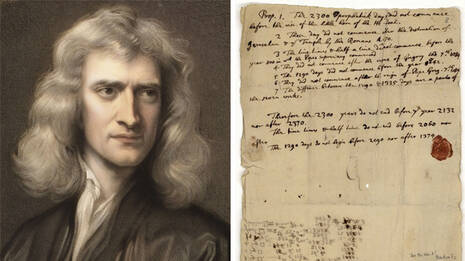 Prop. 1. The 2300 prophetick days did not commence
before the rise of the little horn of the He Goat.
2 Those day did not commence after the destruction of
Jerusalem & ye Temple by the Romans A.
3 The time times & half a time did not commence before the
year 800 in wch the Popes supremacy commenced
4 They did not commence after the reign of Gregory the 7th
5 The 1290 days did not commence before the year 842.
6 They did not commence after the reign of Pope Greg. 7th
7 The difference between the 1290 & 1335 days are a parts of
the seven weeks.
Therefore the 2300 years do not end before ye year 2132
nor after 2370.
The time times & half time do not end before 2060 nor
after
The 1290 days do not begin before 2090 nor after 1374